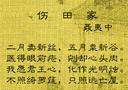 伤田家
聂夷中
二月卖新丝，五月粜新谷，
医得眼前疮，剜却心头肉。
我愿君王心，化作光明烛，
不照绮罗筵，只照逃亡屋。